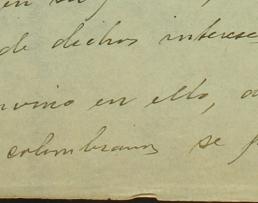 de dichos interese
nvino en ello, a
colombianos se